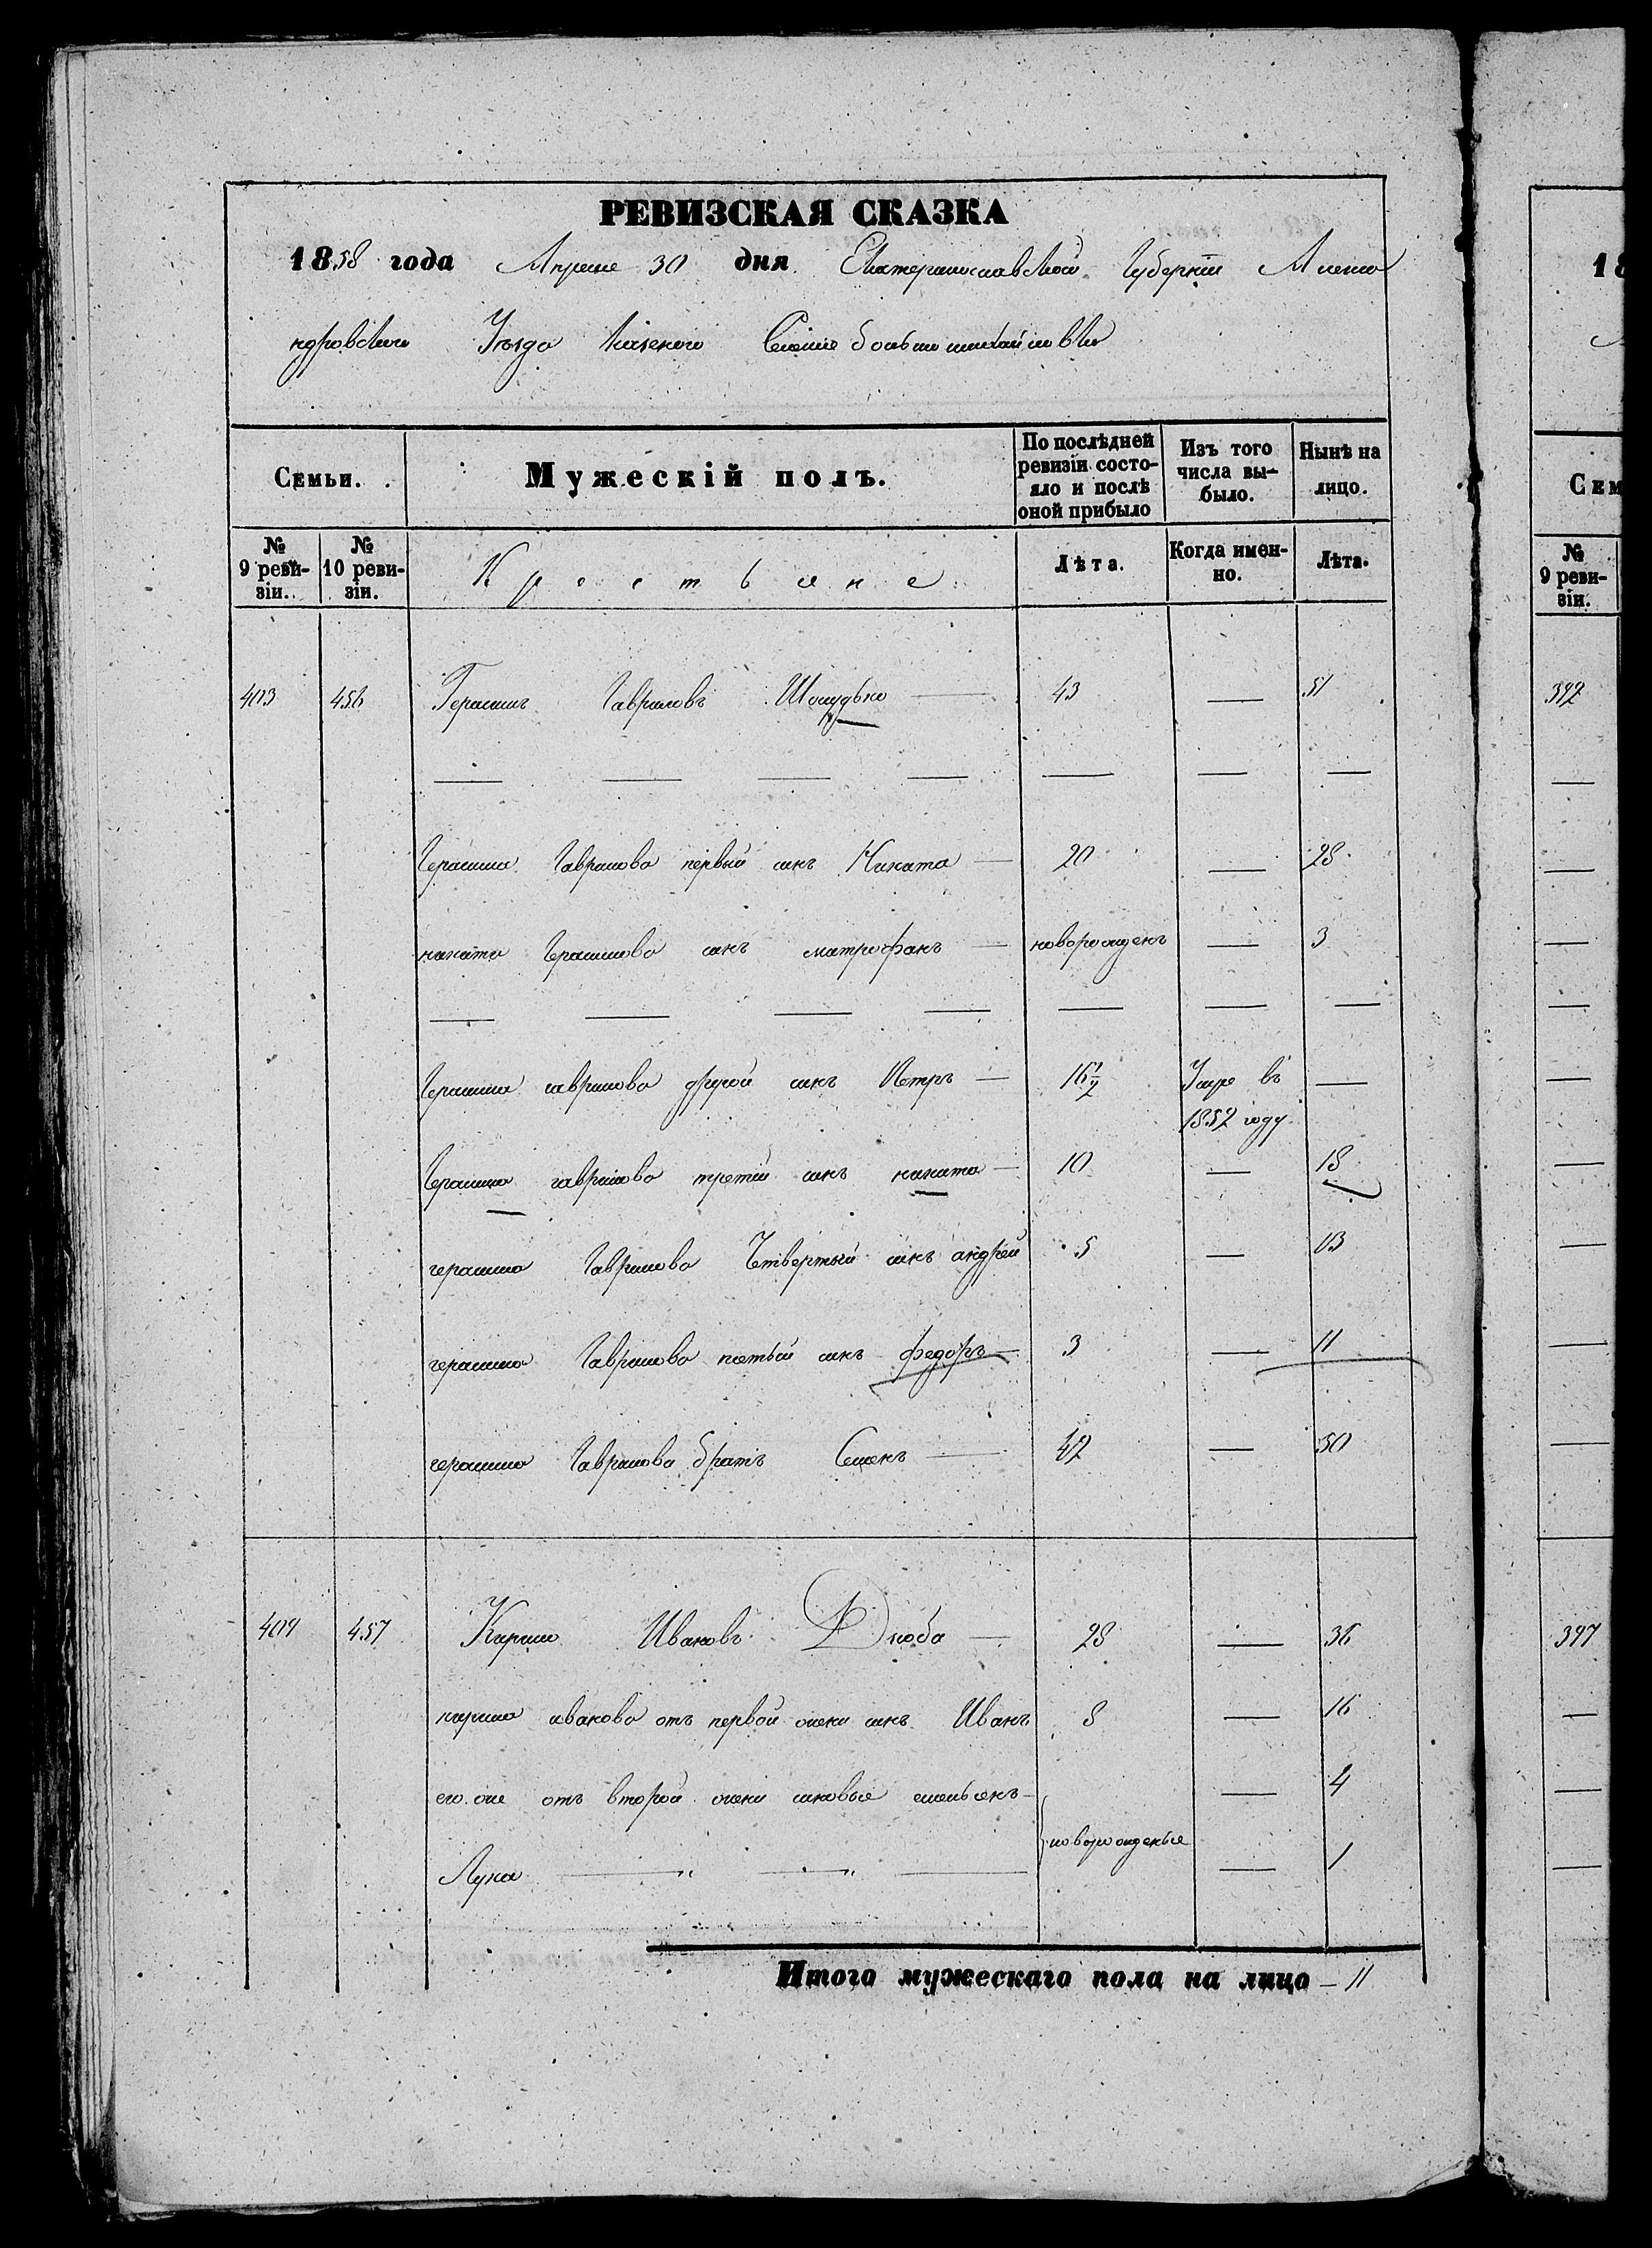 РЕВИЗСКАЯ СКАЗКА
1858 года Апреля 30 дня Екатеринославской Губернии Алекса
ндровского Уезда Казеного Селения больше михайловки
Семьи. Мужескій полъ. По послѣдней ревизіи состояло и послѣ оной прибыло Изъ того числа выбыло. Нынѣ на лицо.
№ 9 ревизіи. № 10 ревизіи. Крестьяне Лѣта. Когда именно. Лѣта.
403 456 Герасимъ Гавриловъ 43 — 51
— — — — — — —
Герасима Гаврилова первый синъ Никита — 20 — 28
никиты Герасимова синъ митрофанъ — новорожденъ — 3
— — — — — — —
Герасима гаврилова другой синъ Петръ — 16 1/2 Умре въ 1852 году —
Герасима гаврилова третий синъ никита — 10 — 18
герасима Гаврилова Четвертый синъ андрей 5 — 13
герасима Гаврилова пятый синъ федоръ — 3 — 11
герасима Гаврилова братъ Семенъ — 42 — 50
404 457 Кирило Ивановъ Дзюба — 28 — 36
кирила иванова отъ первой жени синъ Иванъ 8 — 16
его же отъ второй жени синовье емельянъ — новорожденые — 4
Лука — " — " — — 1
Итого мужескаго пола на лицо — 11
18
Сем
№ 9 ревизіи.
392
—
—
—
—
—
—
—
—
—
397
—
—
—